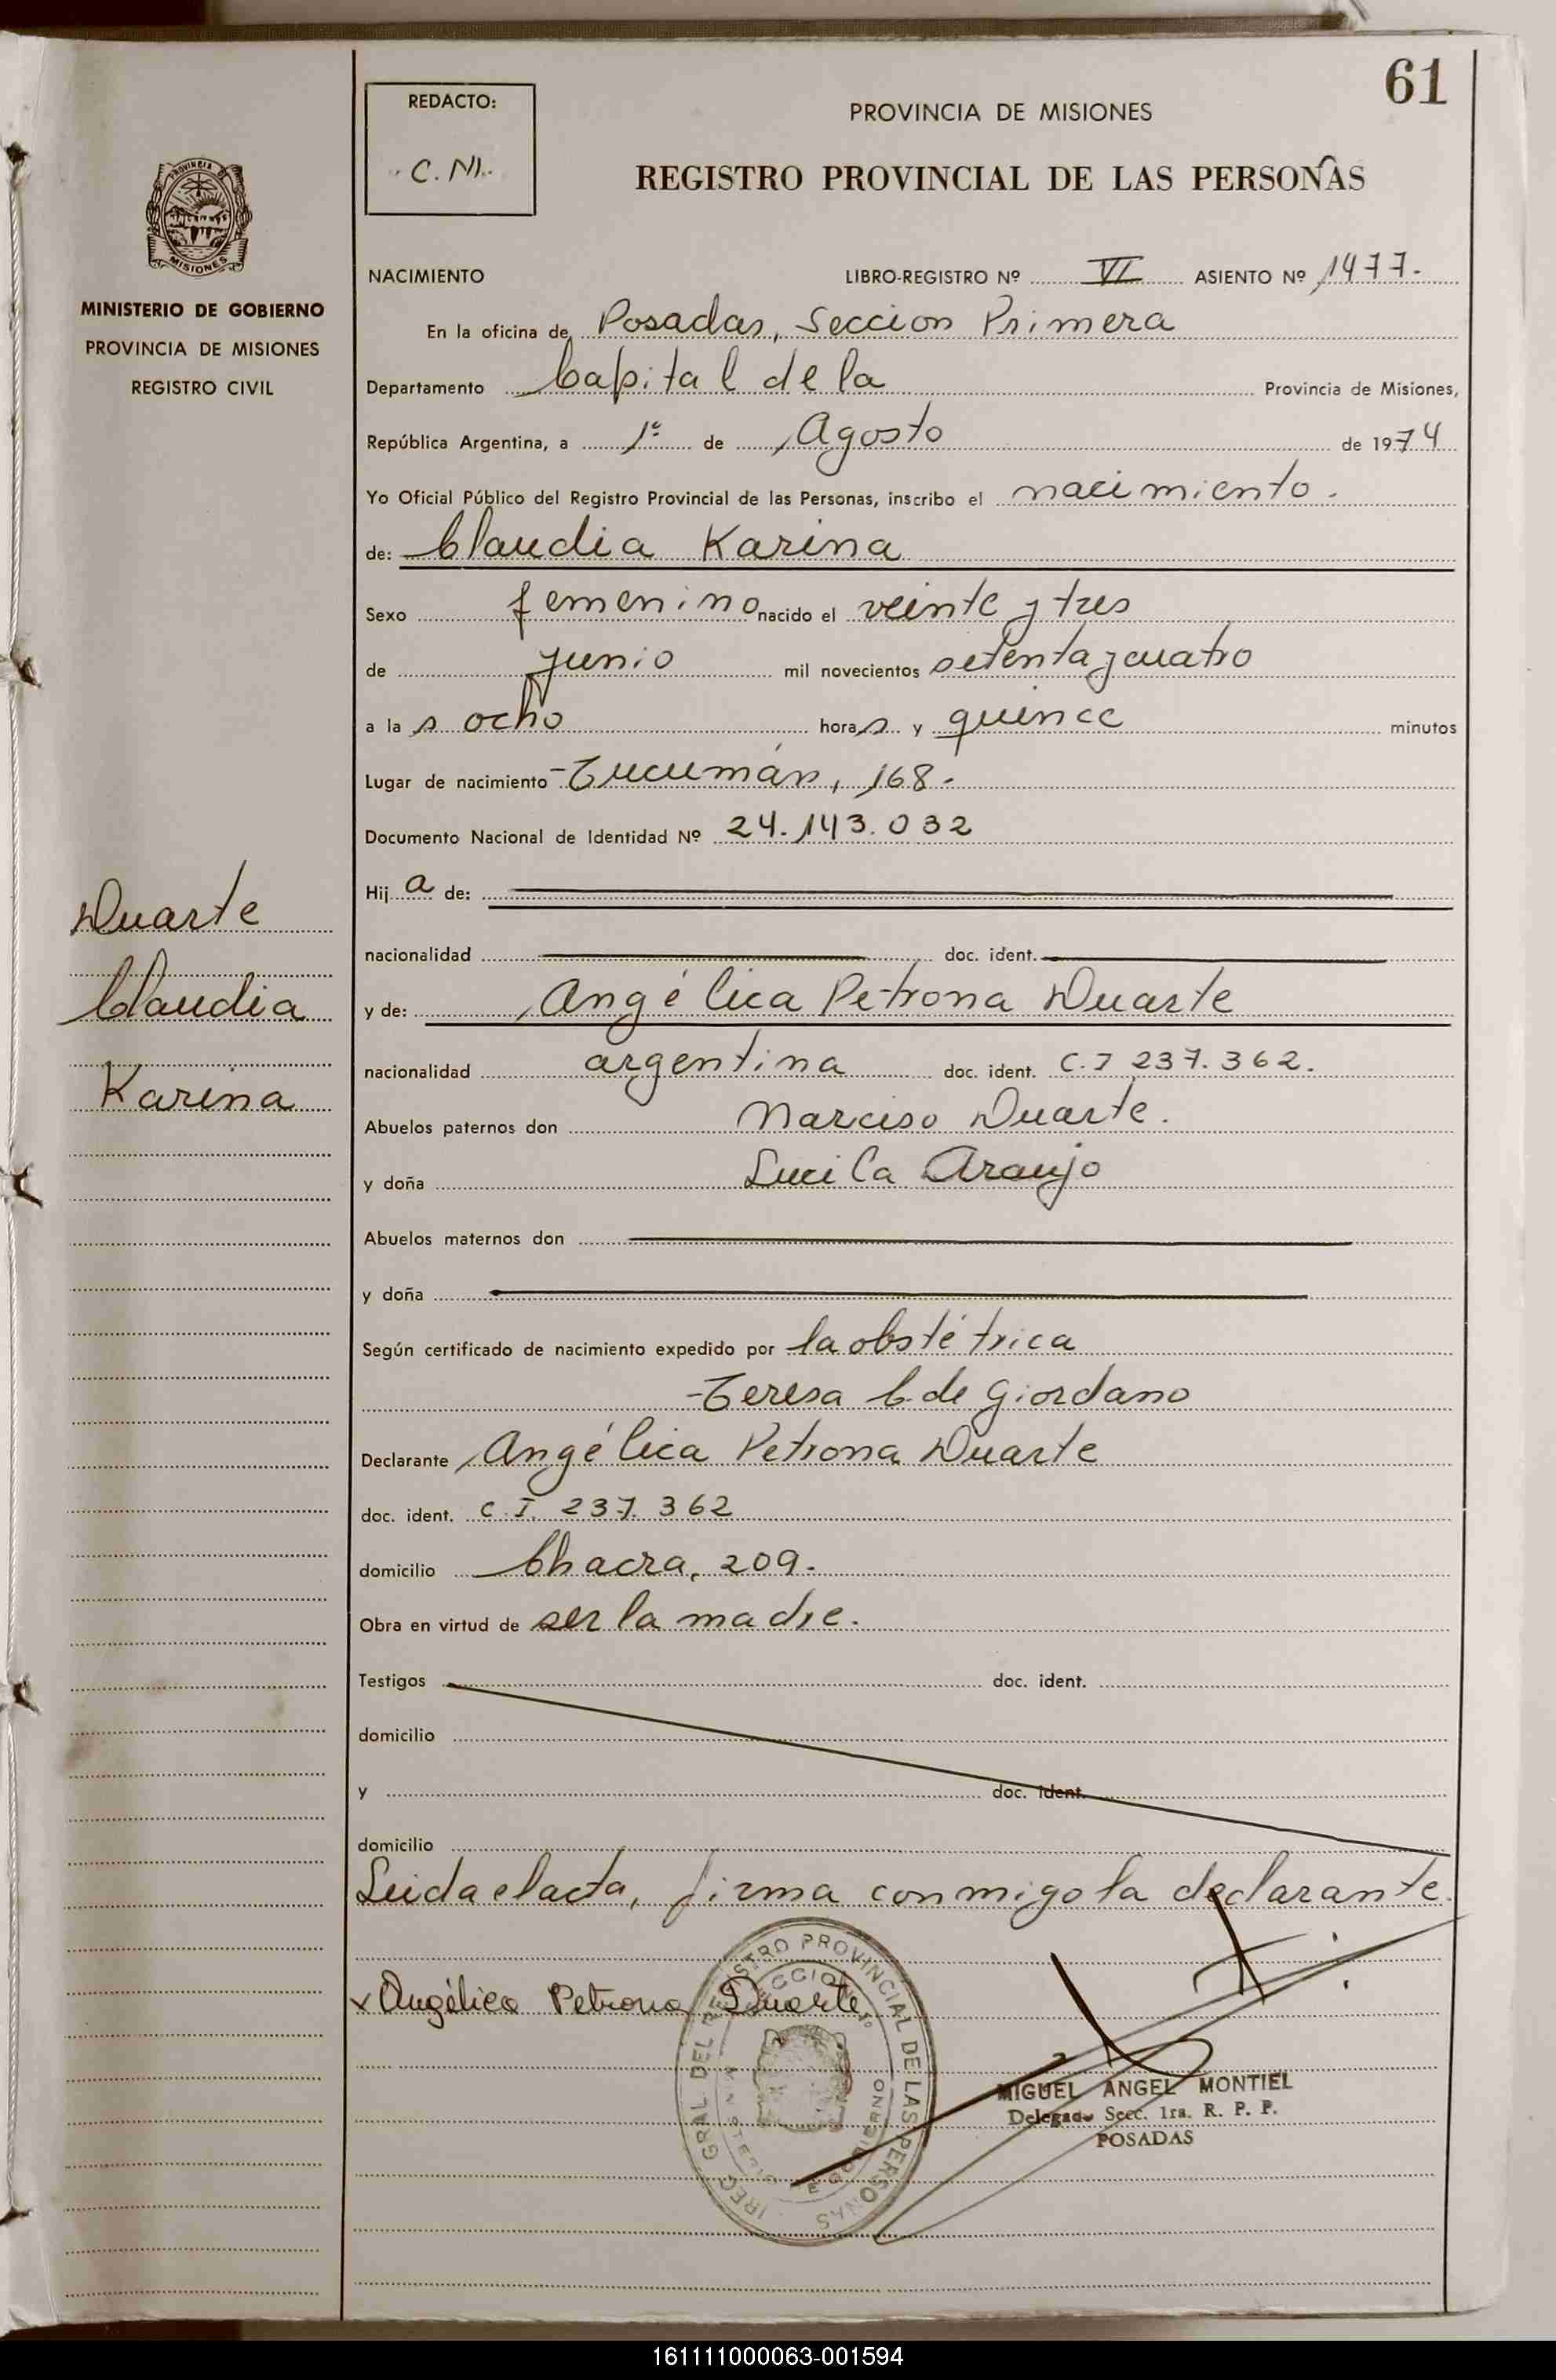 61
REDACTO:
C. M.
PROVINCIA DE MISIONES
REGISTRO PROVINCIAL DE LAS PERSONAS
PROVINCIA DE
MISIONES
MINISTERIO DE GOBIERNO
PROVINCIA DE MISIONES
REGISTRO CIVIL
NACIMIENTO LIBRO-REGISTRO Nº VI ASIENTO Nº 1477.
En la oficina de Posadas, Seccion Primera
Departamento Capital de la Provincia de Misiones,
República Argentina, a 1º de Agosto de 1974
Yo Oficial Público del Registro Provincial de las Personas, inscribo el nacimiento.
de: Claudia Karina
Sexo femenino nacido el veinte y tres
de junio mil novecientos setenta y cuatro
a la s ocho hora s y quince minutos
Lugar de nacimiento Tucumán, 168.
Documento Nacional de Identidad Nº 24.143.032
Hij a de:
nacionalidad doc. ident.
y de: Angélica Petrona Duarte
nacionalidad argentina doc. ident. C.I 237.362.
Abuelos paternos don Narciso Duarte.
y doña Lucila Araujo
Abuelos maternos don
y doña
Según certificado de nacimiento expedido por la obstétrica
Teresa C. de Giordano
Declarante Angélica Petrona Duarte
doc. ident. C.I. 237.362
domicilio Chacra, 209.
Obra en virtud de ser la madre.
Testigos doc. ident.
domicilio
y doc. ident.
domicilio
Leida el acta, firma conmigo la declarante.
x Angélica Petrona Duarte
Duarte
Claudia
Karina
MIGUEL ANGEL MONTIEL
Delegado Secc. 1ra. R. P. P.
POSADAS
DIREC. GRAL. DEL REGISTRO PROVINCIAL DE LAS PERSONAS
161111000063-001594